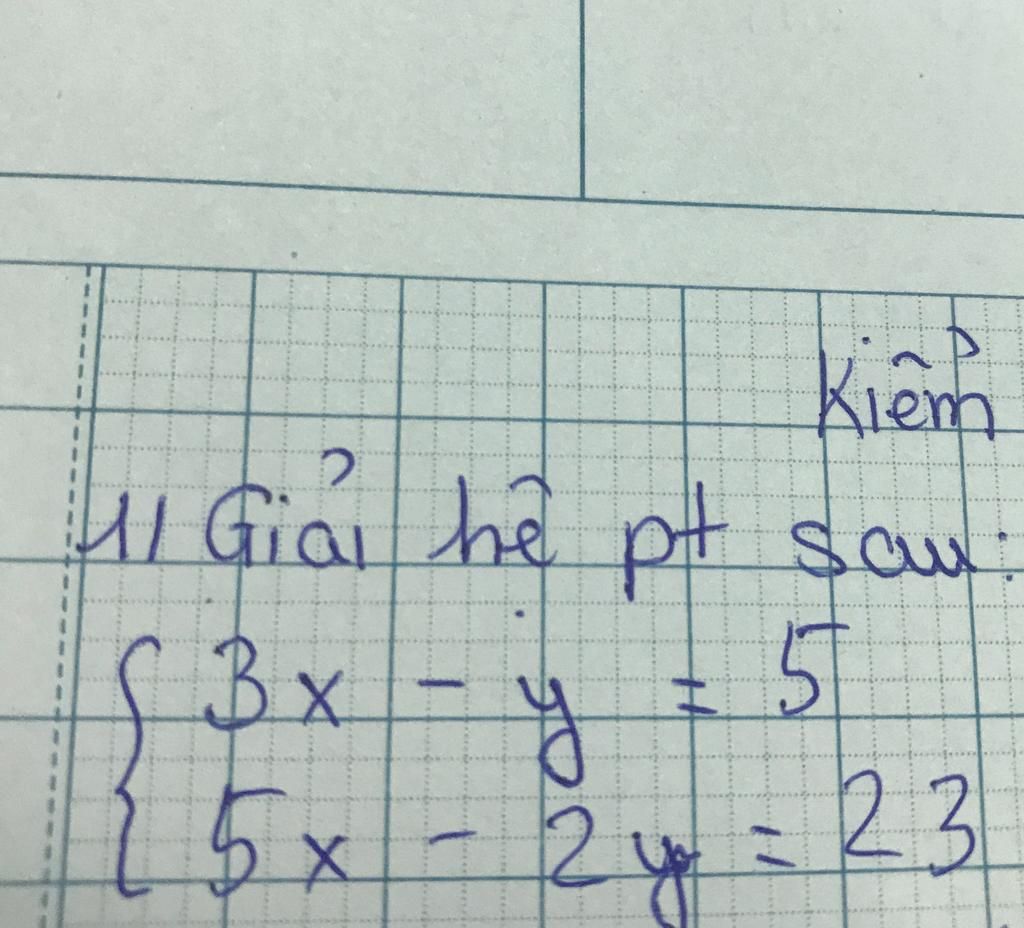 Kiểm
1/ Giải hệ pt sau:
3x - y = 5
5x - 2y = 23